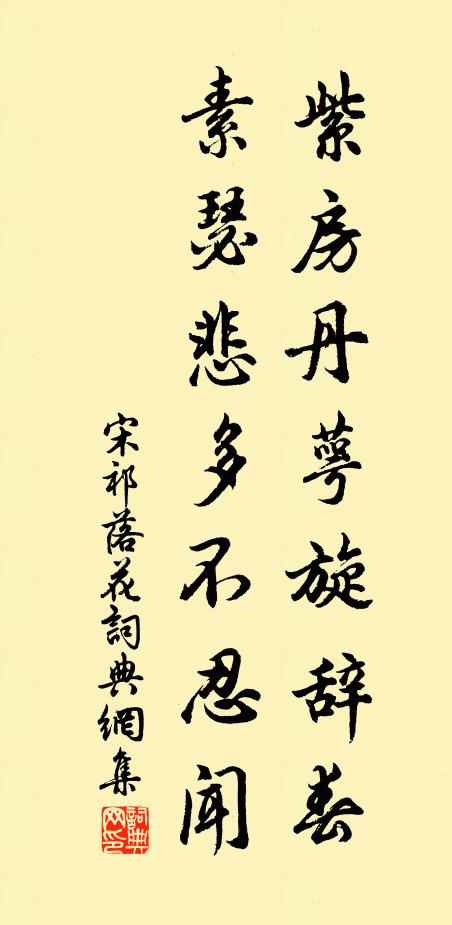 紫房丹萼旋辞春
素瑟悲多不忍闻
宋祁落花詞典網集
詞典網印